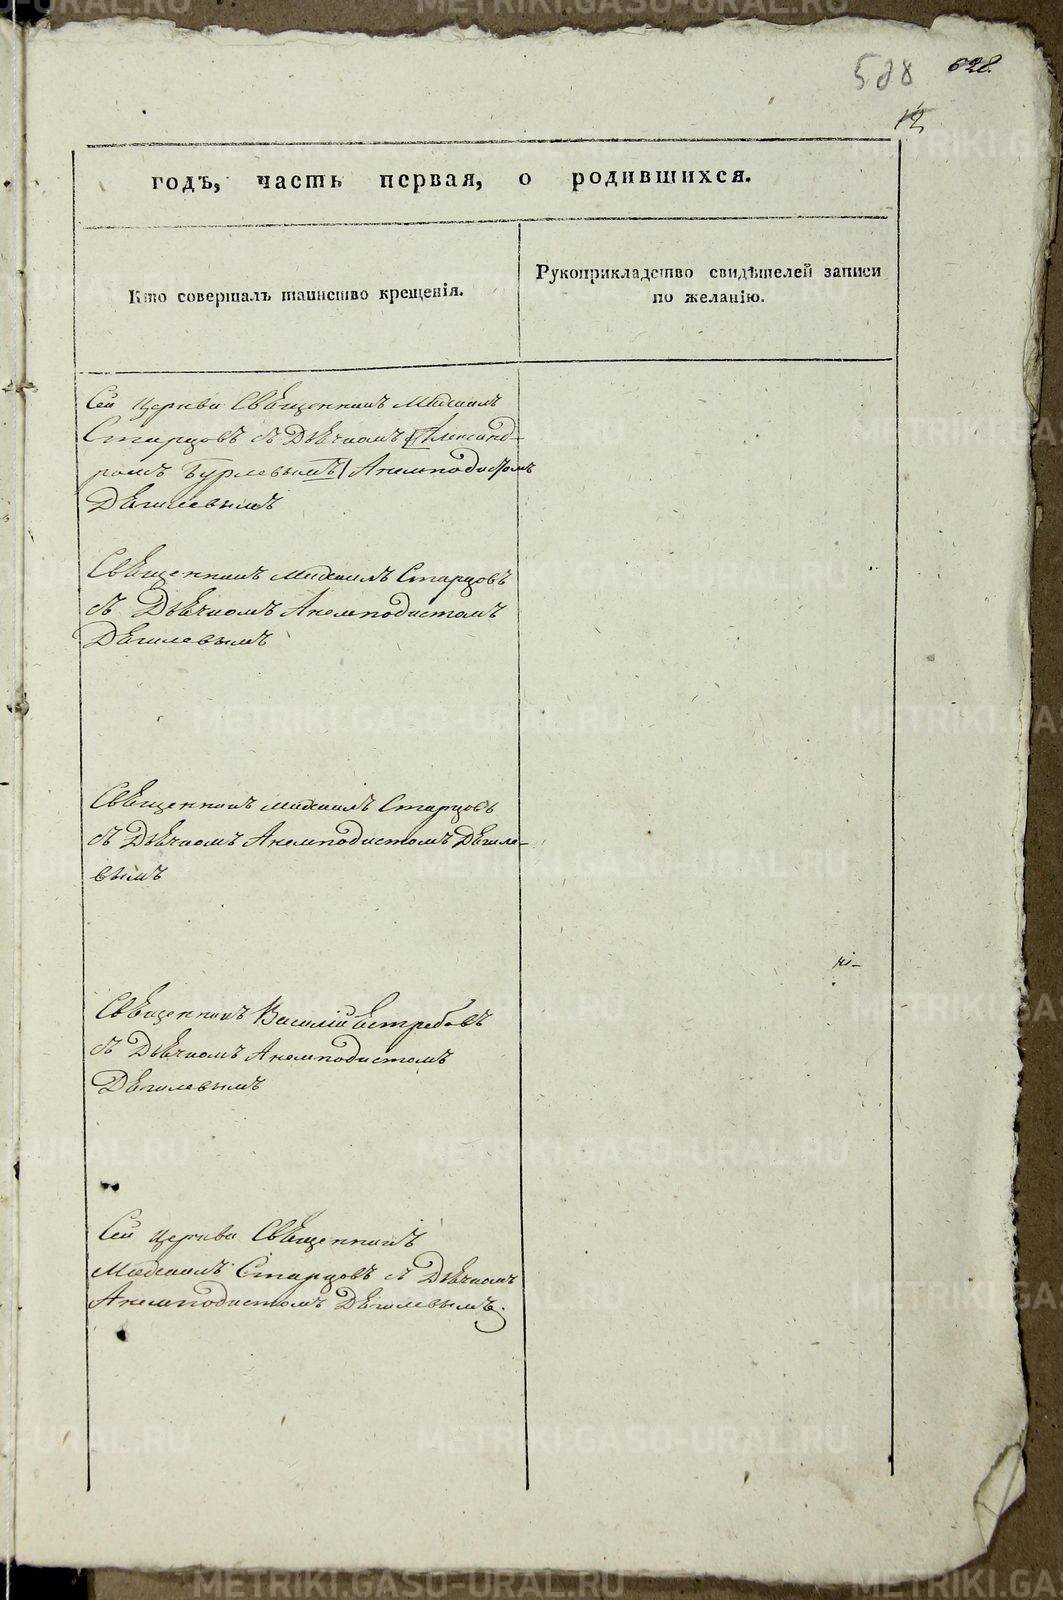 588 628.
12
годъ, часть первая, о родившихся.
Кто совершалъ таинство крещенія.
Рукоприкладство свидѣтелей записи
по желанію.
Сей Церкви Священникъ Михаилъ
Старцовъ съ Дьячкомъ [Александ-
ромъ Бурлевымъ] Анемподистомъ
Дѣгилевымъ
Священникъ Михаилъ Старцовъ
съ Дьячкомъ Анемподистомъ
Дѣгилевымъ
Священникъ Михаилъ Старцовъ
съ Дьячкомъ Анемподистомъ Дѣгиле-
вымъ
Священникъ Василій Ястребовъ
съ Дьячкомъ Анемподистомъ
Дѣгилевымъ
Сей Церкви Священникъ
Михаилъ Старцовъ съ Дьячкомъ
Анемподистомъ Дѣгилевымъ.
METRIKI.GASO-URAL.RU